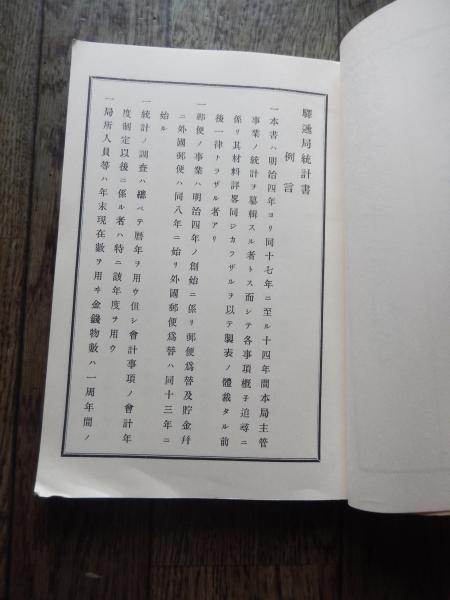 驛遞局統計書
例言
一本書ハ明治四年ヨリ同十七年ニ至ル十四年間本局主管
事業ノ統計ヲ纂輯スル者トス而シテ各事項概子追尋ニ
係リ其材料詳畧同ジカラザルヲ以テ製表ノ體裁タル前
後一律トヲザル者アリ
一郵便ノ事業ハ明治四年ノ創始ニ係リ郵便爲替及貯金幷
ニ外國郵便ハ同八年ニ始リ外國郵便爲替ハ同十三年ニ
始ル
一統計ノ調査ハ總ベテ曆年ヲ用ウ但シ會計事項ノ會計年
度制定以後ニ係ル者ハ特ニ該年度ヲ用ウ
一局所人員等ハ年末現在數ヲ用ヰ金錢物數ハ一周年間ノ